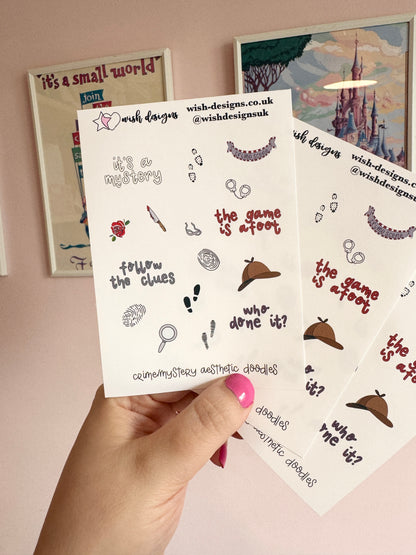 it's a small world
join
wish designs
wish-designs.co.uk
@wishdesignsuk
it's a
mystery
the game
is afoot
follow
the clues
who
done it?
crime/mystery aesthetic doodles
wish designs
wish-designs.
@wishdesigns
the game
is afoot
who
done it?
doodles
the game
is afoot
who
done it?
aesthetic doodles